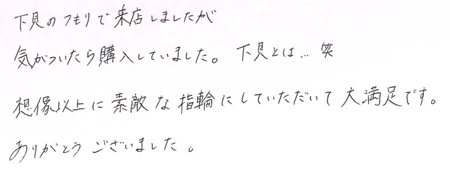 下見のつもりで来店しましたが
気がついたら購入していました。下見とは…笑
想像以上に素敵な指輪にしていただいて大満足です。
ありがとうございました。